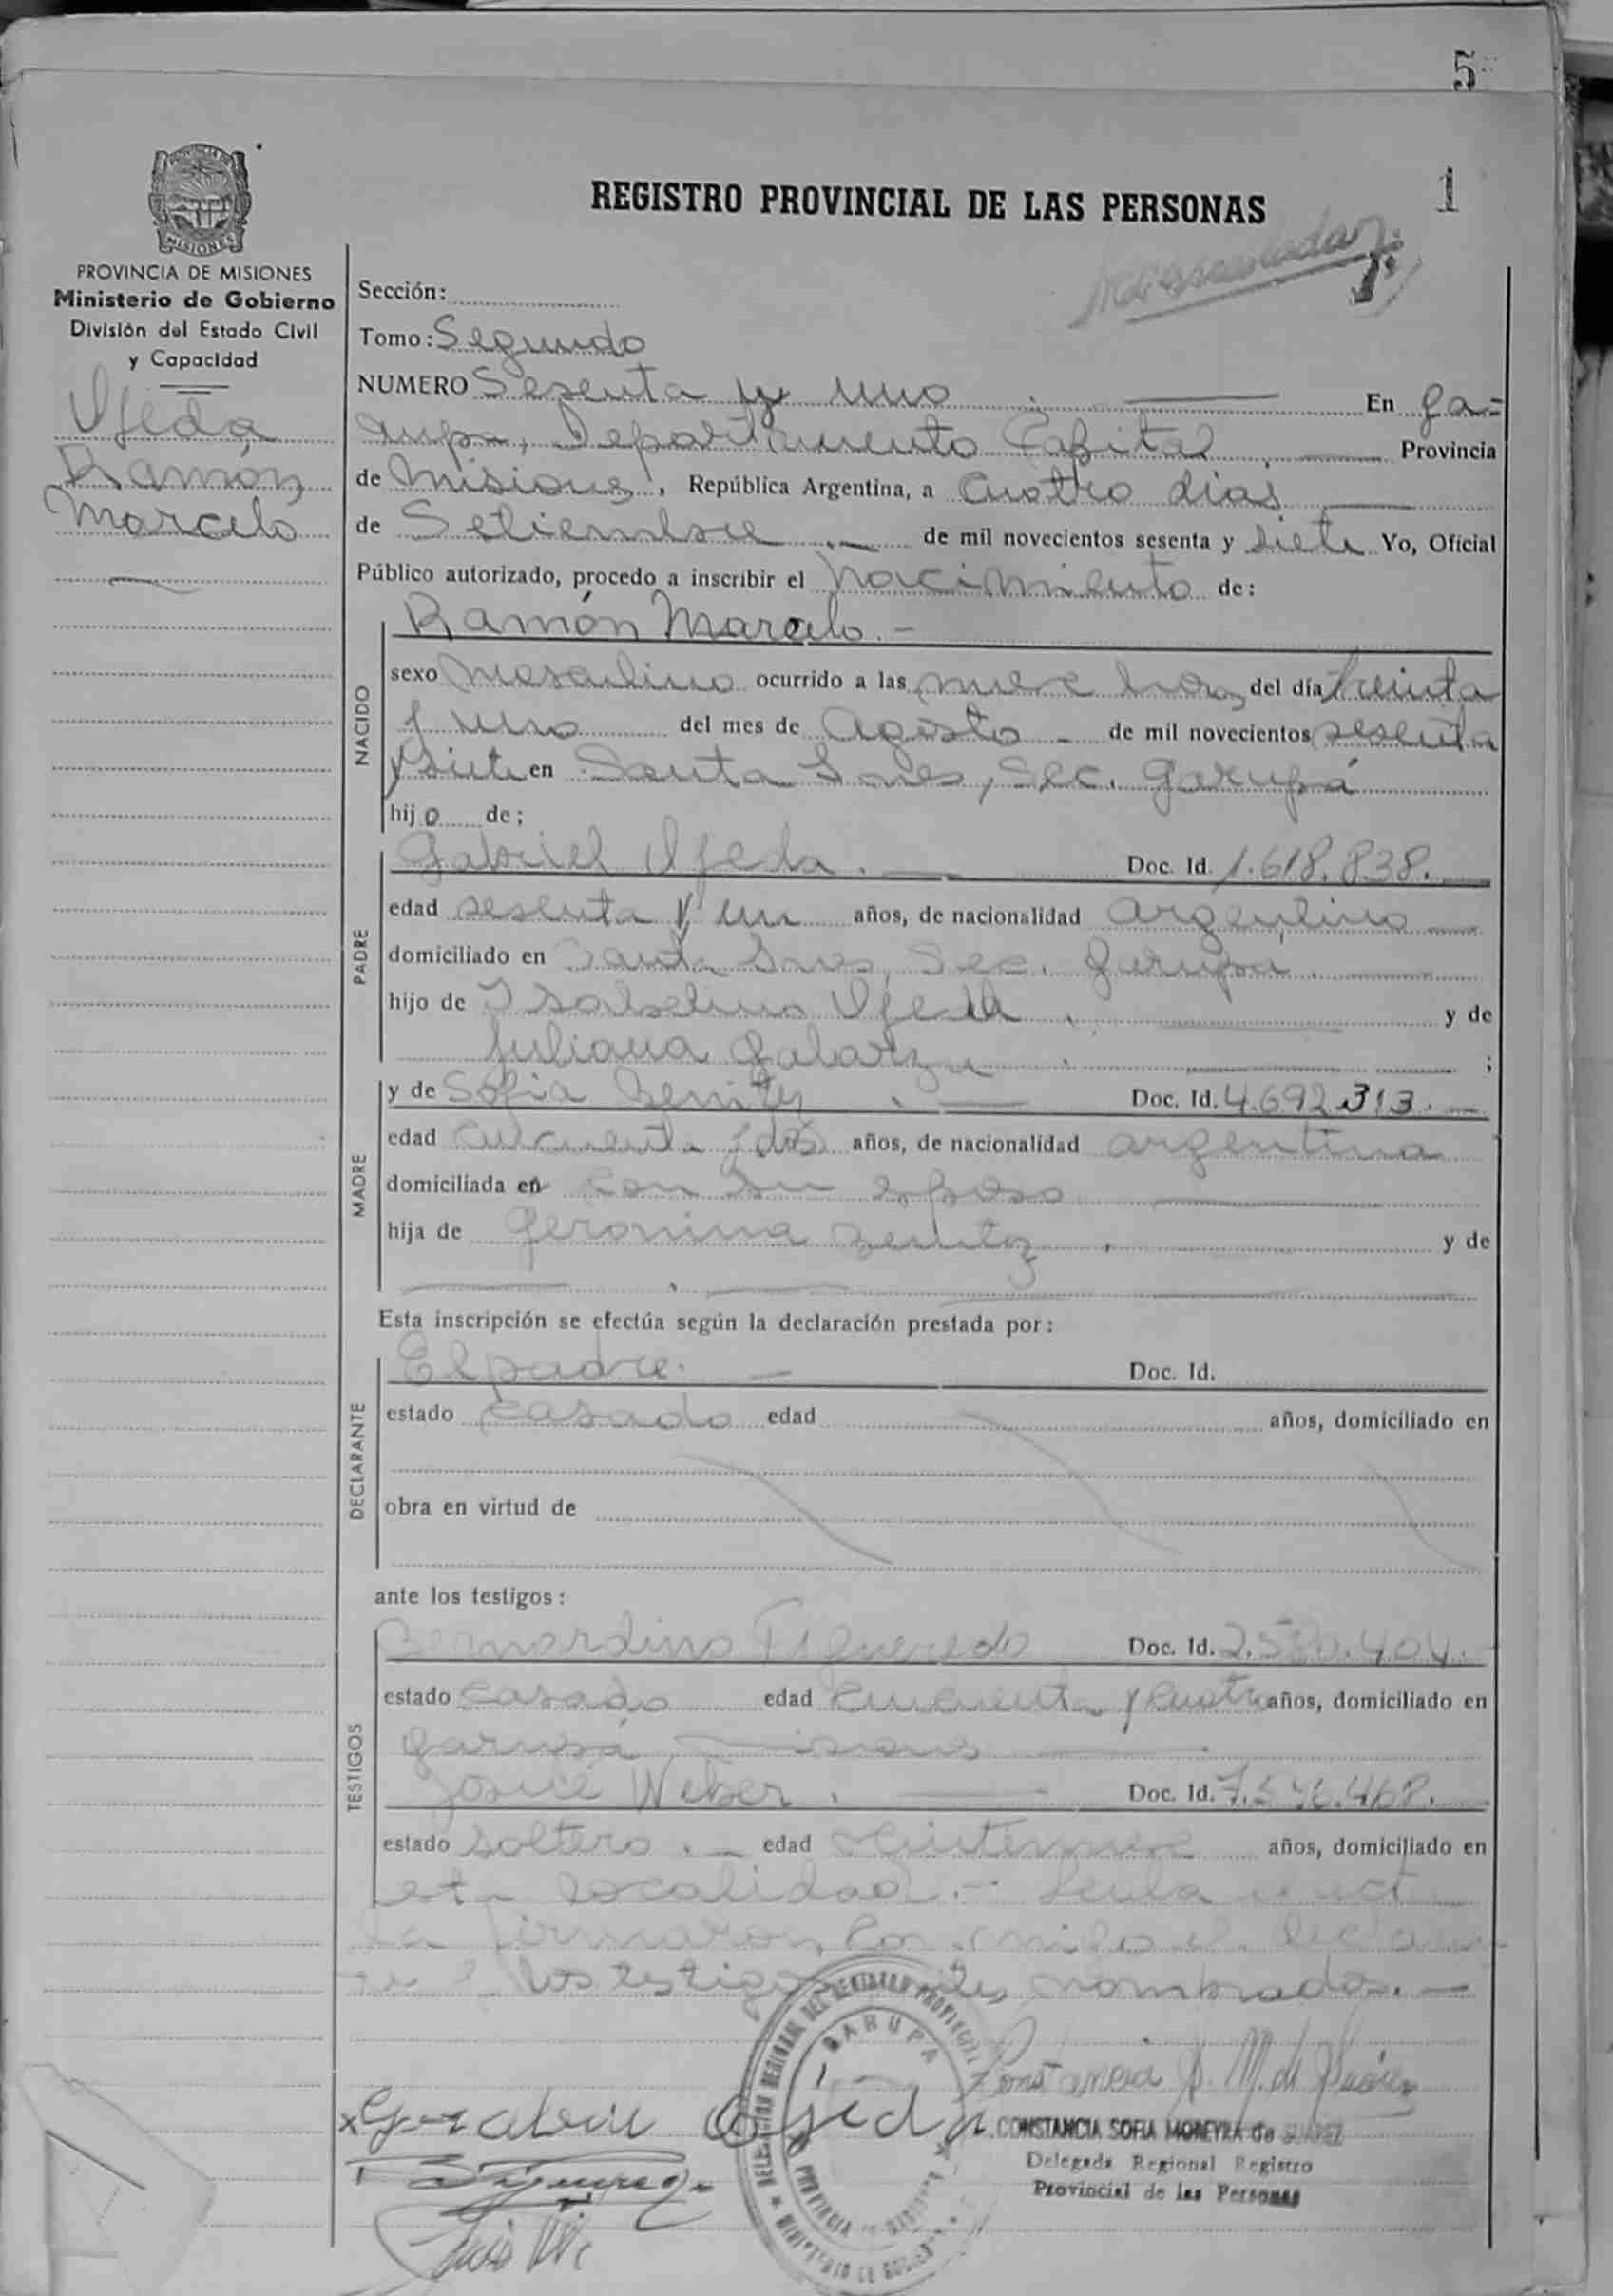 5
1
REGISTRO PROVINCIAL DE LAS PERSONAS
1º
MISIONES
PROVINCIA DE MISIONES
Ministerio de Gobierno
División del Estado Civil
y Capacidad
Ojeda
Ramón
Marcelo
Sección:
Tomo: Segundo
NUMERO Sesenta y uno En Ga=
rupa, Departamento Capital, Provincia
de Misiones, República Argentina, a cuatro días
de Setiembre de mil novecientos sesenta y siete Yo, Oficial
Público autorizado, procedo a inscribir el nacimiento de:
Ramón Marcelo.-
NACIDO
sexo masculino ocurrido a las nueve horas del día treinta
y uno del mes de Agosto de mil novecientos sesenta
y siete en Santa Ines, Sec. Garupá
hijo de;
PADRE
Gabriel Ojeda. Doc. Id. 1.618.838.
edad sesenta y un años, de nacionalidad argentino
domiciliado en Santa Ines, Sec. Garupa.
hijo de Isabelino Ojeda. y de
Juliana Galarza. ;
MADRE
y de Sofia Benitez. Doc. Id. 4.692.313.
edad cincuenta y dos años, de nacionalidad argentina
domiciliada en con su esposo
hija de Geronima Benitez, y de
Esta inscripción se efectúa según la declaración prestada por:
DECLARANTE
El padre. Doc. Id.
estado casado edad años, domiciliado en
obra en virtud de
ante los testigos:
TESTIGOS
Bernardino Figueredo Doc. Id. 2.580.404.
estado casado edad cincuenta y cuatro años, domiciliado en
Garupá, Misiones
Weber. Doc. Id. 7.546.468.
estado soltero. edad veintinueve años, domiciliado en
esta localidad.- Leida el acta
la firmaron conmigo el declaran
te y los testigos antes nombrados.-
DELEGACION REGIONAL DEL REGISTRO PROVINCIAL
GARUPA
PROVINCIA DE MISIONES
MINISTERIO DE GOBIERNO
Constancia S. M. de Suárez
x Gabriel Ojeda
CONSTANCIA SOFIA MOREYRA de SUAREZ
Delegada Regional Registro
Provincial de las Personas
B Figueredo